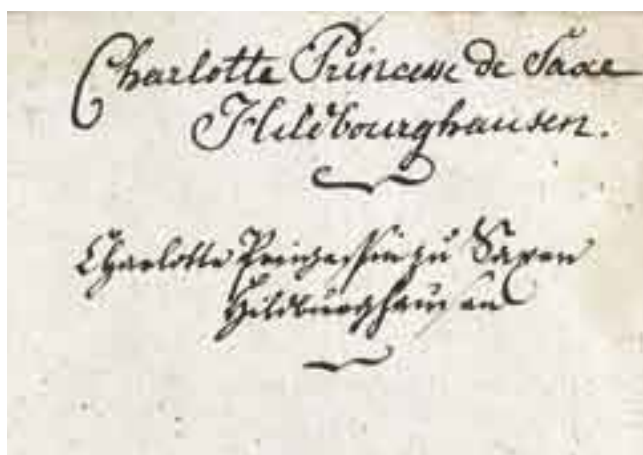 Charlotte Princesse de Saxe
Hildbourghausen.
Charlotte Prinzessin zu Saxen
Hildburghausen